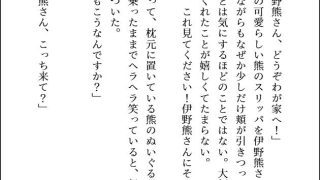 野熊さん、どうぞわが家へ!」
の可愛らしい熊のスリッパを伊野熊さ
ながらもなぜか少しだけ頬が引きつっ
とは気にするほどのことではない。大
くれたことが嬉しくてたまらない。
、これ見てください!伊野熊さんにそ
って、枕元に置いている熊のぬいぐる
乗ったままでヘラヘラ笑っていると、
ついた。
もこうなんですか?」
熊さん、こっち来て?」